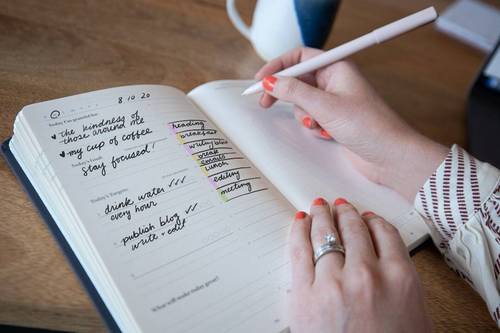 8 10 20
Today I'm grateful for:
♥ the kindness of
those around me
♥ my cup of coffee
Today's Focus
stay focused!
Today's Targets
drink water ✓✓✓
every hour
publish blog ✓✓
write + edit
What will make today great?
reading
breakfast
writing blog
break
emails
lunch
editing
meeting